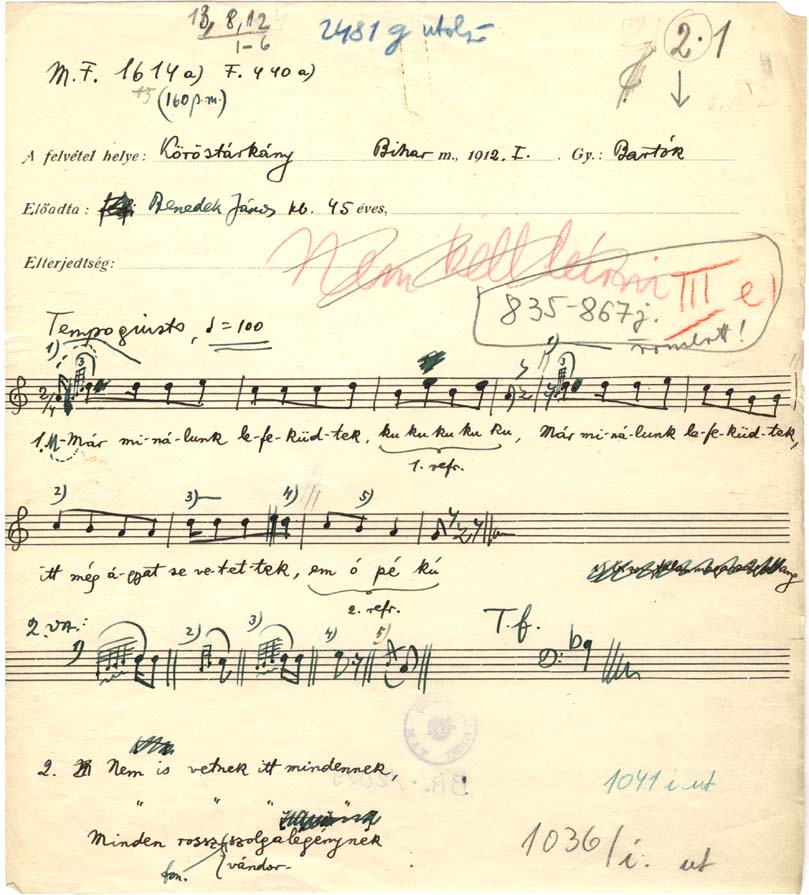 13, 8, 12
1-6
2481 g utolsó
2.1
M.F. 1614 a) F. 440 a)
(160 p.m.)
A felvétel helye: Köröstárkány Bihar m., 1912. I. Gy.: Bartók
Előadta: Benedek János kb. 45 éves,
Elterjedtség:
Nem kell leírni III e)
835-867 j.
romlott!
Tempo giusto, ♩=100
1) 3 1) 3
2/4
1. M-Már mi-ná-lunk le-fe-küd-tek, ku ku ku ku ku, Már mi-ná-lunk le-fe-küd-tek,
1. refr.
2) 3) 4) 5)
itt még á-gyat se ve-tet-tek, em ó pé kú
2. refr.
2. va.: T.f.
1) 2) 3) 4) 5)
2. Nem is vetnek itt mindennek,
" " "
Minden rossz szolgalegénynek
fon. vándor-
1041 i ut
1036/i. ut